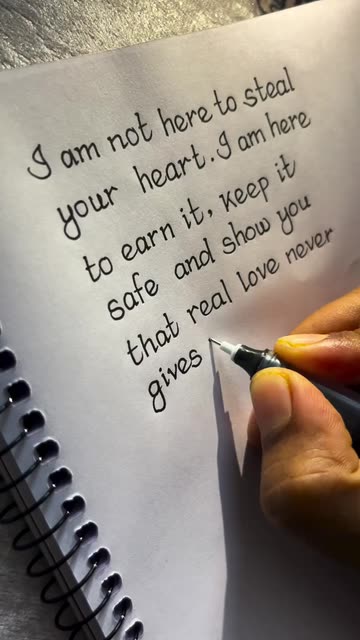 I am not here to steal
your heart. I am here
to earn it, keep it
safe and show you
that real love never
gives